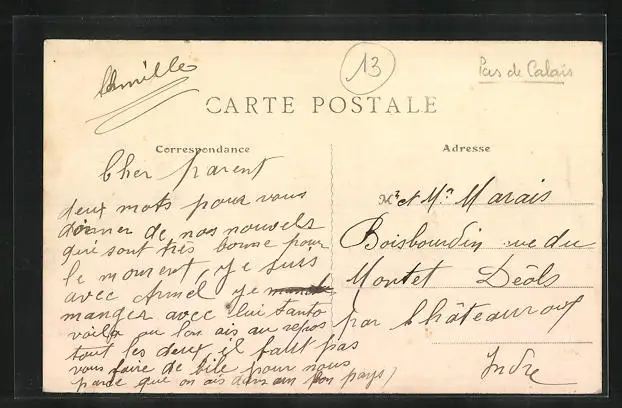 Camille
13
Pas de Calais
CARTE POSTALE
Correspondance
Adresse
Cher parent
deux mots pour vous
donner de nos nouvels
qui sont très bonne pour
le moment, je suis
avec Armel, je
manger avec lui tanto
voila ou l'on ais au repos
tout les deux il faut pas
vous faire de bile pour nous
parce que on ais dans un bon pays)
Mr et Mm Marais
Boisbourdin rue du
Montet Déols
par Châteauroux
Indre